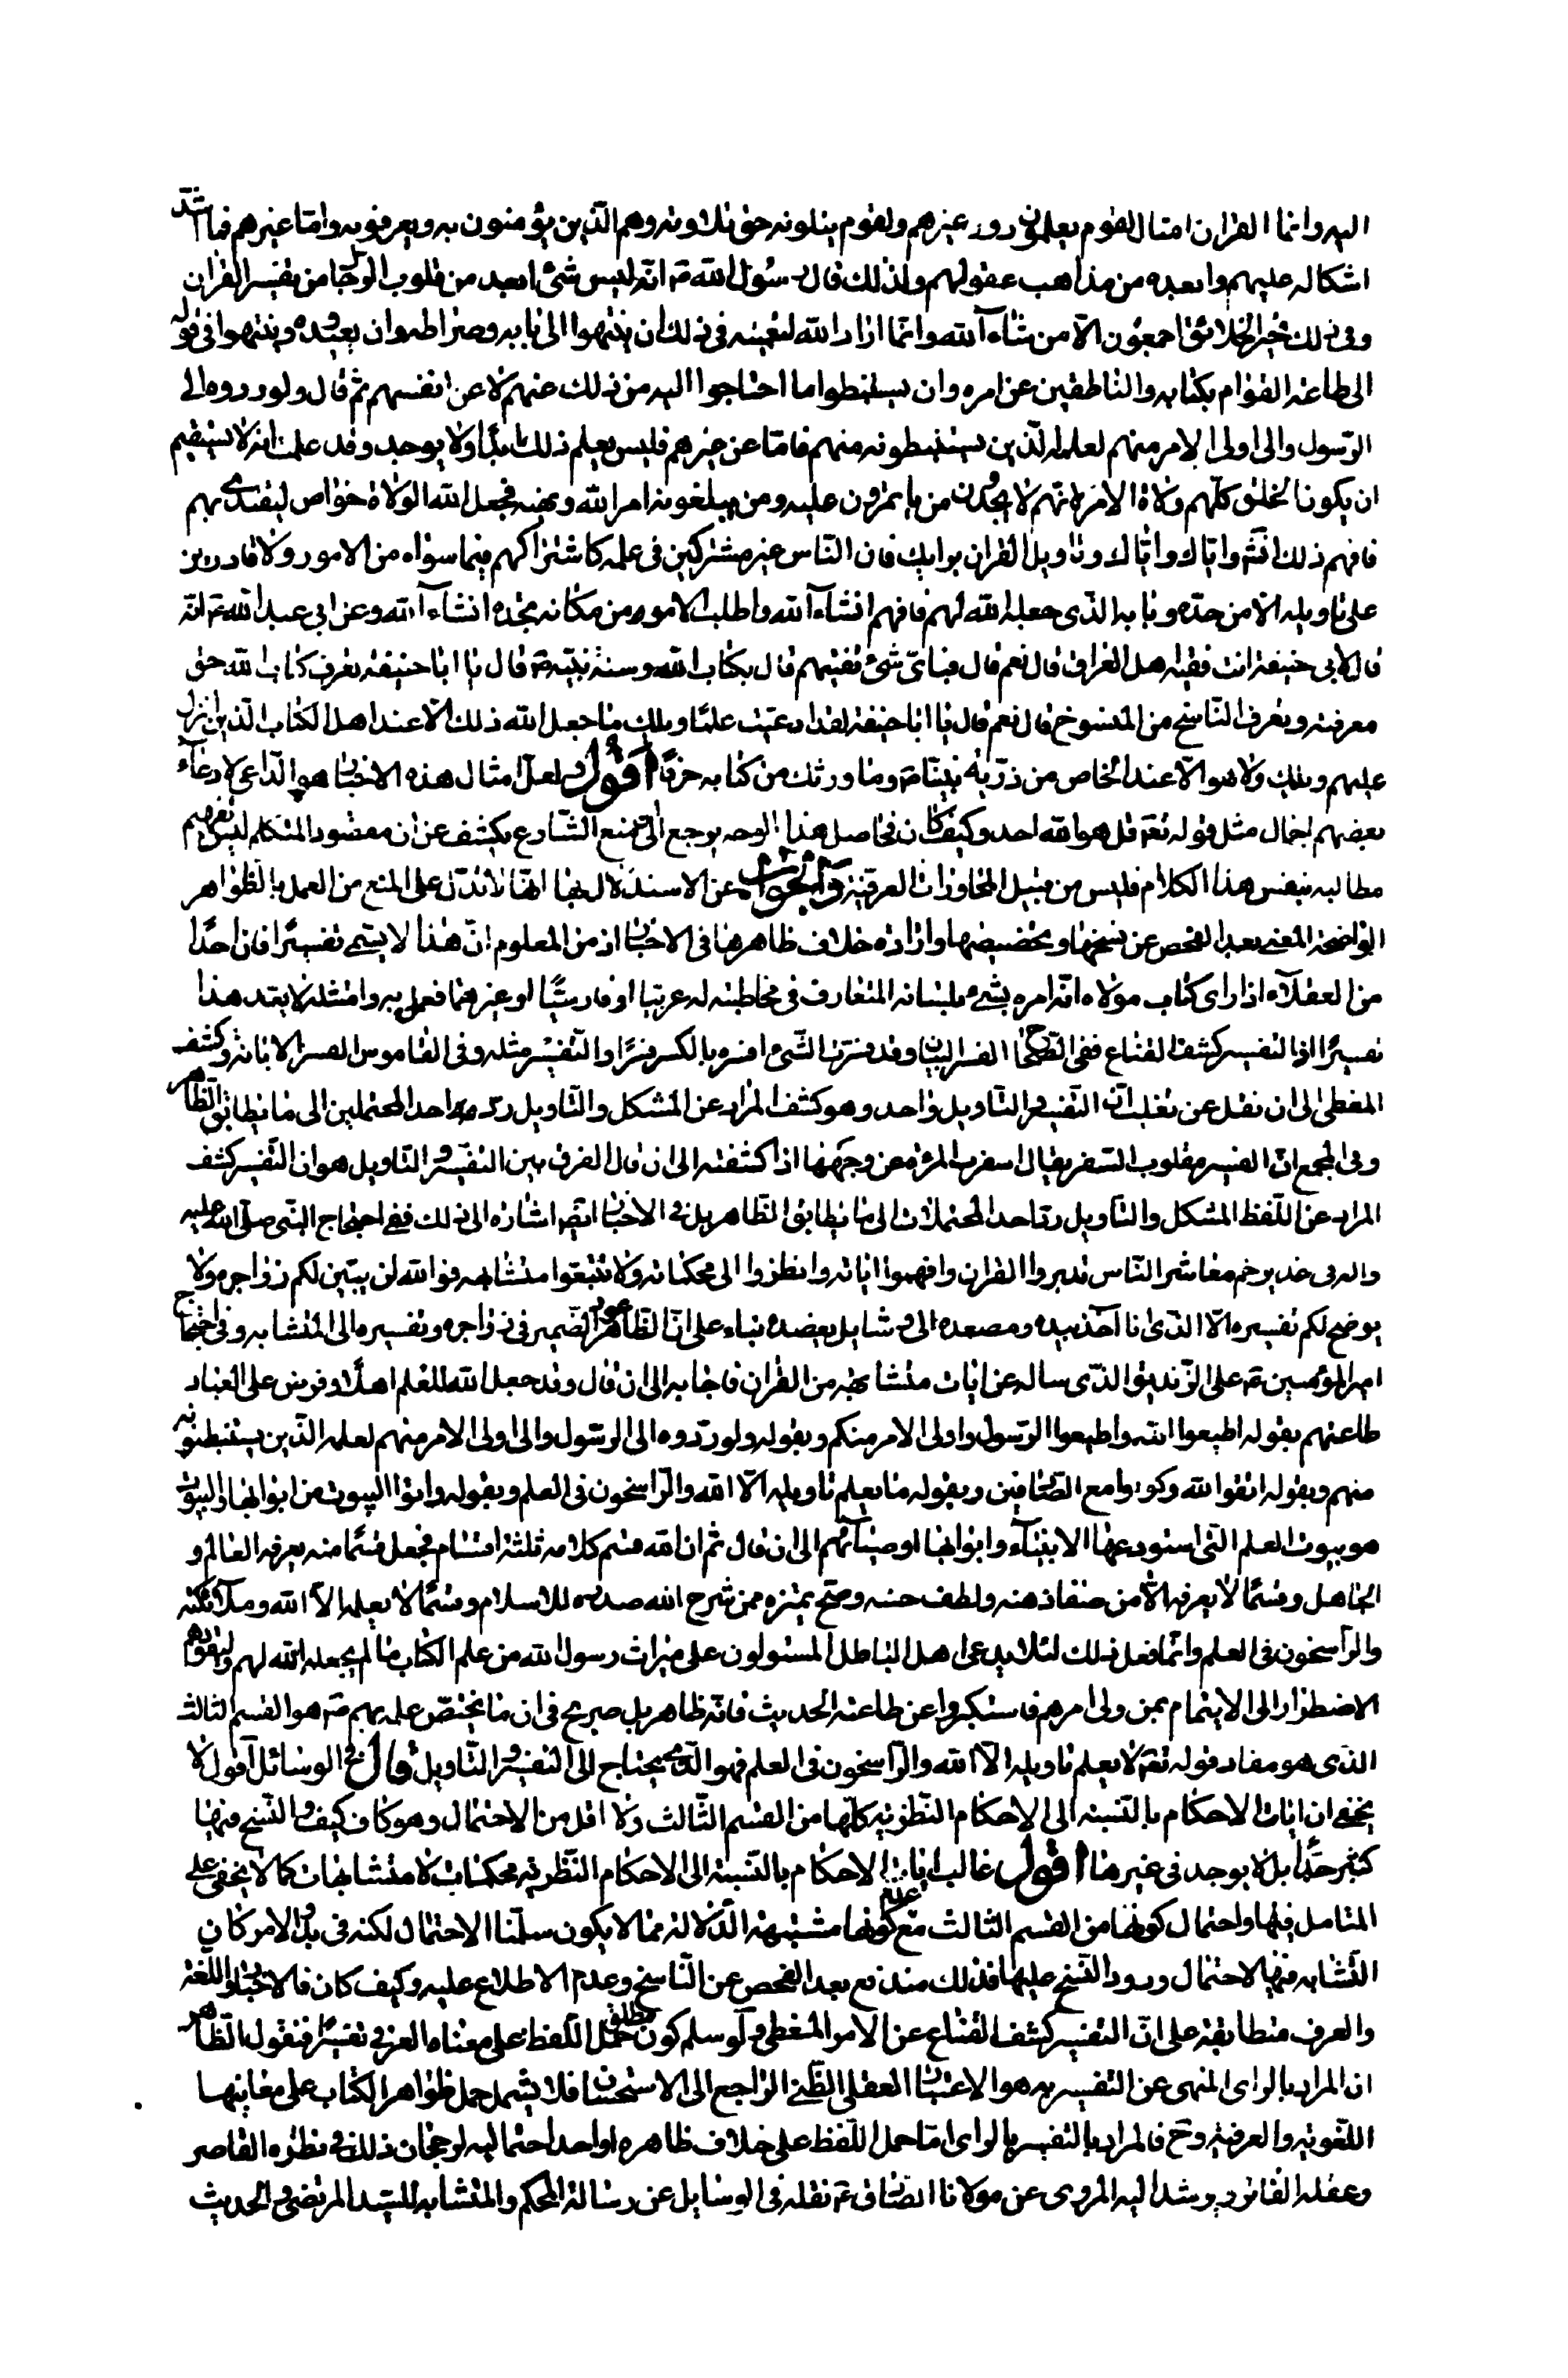 اليه وانما القران امثال لقوم يعلمون دون غيرهم ولقوم يتلونه حق تلاوته وهم الّذين يؤمنون به ويعرفونه وامّا غيرهم فما اشدّ
اشكاله عليهم وابعده من مذاهب عقولهم ولذلك قال رسول اللّه ص انّه ليس شئ ابعد من قلوب الرّجال من تفسير القران
وفى ذلك تحيّر الخلائق اجمعون الّا من شاء اللّه وانّما اراد اللّه بتعميته فى ذلك ان ينتهوا الى بابه وصراطه وان يعبدوه وينتهوا فى قوله
الى طاعة القوّام بكتابه والناطقين عن امره وان يستنبطوا ما احتاجوا اليه من ذلك عنهم لا عن انفسهم ثم قال ولو ردوه الى
الرّسول والى اولى الامر منهم لعلمه الّذين يستنبطونه منهم فامّا عن غيرهم فليس يعلم ذلك ابدًا ولا يوجد وقد علمت انه لا يستقيم
ان يكون الخلق كلّهم ولاة الامر لانّهم لا يجدون من يأتمرون عليه ومن يبلغونه امر اللّه ونهيه فجعل اللّه الولاة خواص ليقتدى بهم
فافهم ذلك انشه وايّاك وايّاك وتاويل القران برايك فان النّاس غير مشتركين فى علمه كاشتراكهم فيما سواه من الامور ولا قادرين
على تاويله الّا من حدّه وبابه الذّى جعله اللّه لهم فافهم انشاء اللّه واطلب الامر من مكانه تجده انشاء اللّه وعن ابى عبد اللّه ع انّه
قال لابى حنيفة انت فقيه اهل العراق قال نعم قال فباىّ شئ تفتيهم قال بكتاب اللّه وسنة نبيّه ص قال يا ابا حنيفة تعرف كتاب اللّه حق
معرفته وتعرف النّاسخ من المنسوخ قال نعم قال يا ابا حنيفة لقد ادعيت علمًا ويلك ما جعل اللّه ذلك الّا عند اهل الكتاب الّذين انزل
عليهم ويلك ولا هو الّا عند الخاص من ذرّية نبيّنا ص وما ورثك من كتابه حرفًا اقول ولعل امثال هذه الاخبار هو الدّاعى لادعاء
بعضهم اجمال مثل قوله تعم قل هو اللّه احد وكيف كان فحاصل هذا الوجه يرجع الى منع الشّارع يكشف عن ان مقصود المتكلم ليس تفهيم
مطالبه بنفس هذا الكلام فليس من قبيل المحاورات العرفيّة والجواب عن الاستدلال بها انّها لا تدلّ على المنع من العمل بالظّواهر
الواضحة المعنى بعد الفحص عن نسخها وتخصيصها وارادة خلاف ظاهرها فى الاخبار اذ من المعلوم انّ هذا لا يسمّى تفسيرًا فان احدًا
من العقلاء اذا راى كتاب مولاه انّه امره بشئ بلسانه المتعارف فى مخاطبته له عربيّا او فارسيًّا او غيرهما فعمل به وامتثله لا يعّد هذا
تفسيرًا اذا لتفسير كشف القناع ففى الصّحاح الفسر البيان وقد فسّرت الشّئ افسره بالكسر فسرًا والتّفسير مثله وفى القاموس الفسر الابانة وكشف
المغطى الى ان نقل عن تغلب انّ التّفسير والتّاويل واحد وهو كشف المراد عن المشكل والتّاويل ردّ احد المحتملين الى ما يطابق الظّاهر
وفى المجمع انّ الفسير مقلوب السّفر يقال اسفرت المرئة عن وجهها اذا كشفته الى ان قال الفرق بين التّفسير والتّاويل هو ان التّفسير كشف
المراد عن اللّفظ المشكل والتّاويل ردّ احد المحتملات الى ما يطابق الظّاهر بل فى الاخبار ايضًا اشارة الى ذلك ففى احتجاج النّبى صلّى اللّه عليه
واله فى غدير خم معاشر النّاس تدبروا القران وافهموا اياته وانظروا الى محكماته ولا تتبعّوا متشابهه فو اللّه لن يبيّن لكم زواجره ولا
يوضح لكم تفسيره الّا الذّى انا اخذ بيده ومصعده الىّ وشايل بعضده بناء على انّ الظّاهر عود الضّمير فى زواجره وتفسيره الى المتشابه وفى احتجاج
امير المؤمنين ع على الزّنديق الذّى ساله عن ايات متشابهة من القران فاجابه الى ان قال وقد جعل اللّه للعلم اهلًا وفرض على العباد
طاعتهم بقوله اطيعوا اللّه واطيعوا الرّسول واولى الامر منكم وبقوله ولو ردّوه الى الرسّول والى اولى الامر منهم لعلمه الّذين يستنبطونه
منهم وبقوله اتقوا اللّه وكونوا مع الصّادقين وبقوله ما يعلم تاويله الّا اللّه والرّاسخون فى العلم وبقوله واتوا البيوت من ابوابها والبيوت
هو بيوت العلم التّى استودعها الانبياء وابوابها اوصيائهم الى ان قال ثم ان اللّه قسّم كلامه ثلثة اقسام فجعل قسمًا منه يعرفه العالم و
الجاهل وقسمًا لا يعرفه الّا من صفا ذهنه ولطف حسّه وصحّ تميزه ممن شرح اللّه صدره للاسلام وقسمًا لا يعلمه الّا اللّه وملائكته
والرّاسخون فى العلم وانّما فعل ذلك لئلا يدعى اهل الباطل المستولون على ميراث رسول اللّه من علم الكتاب ما لم يجعله اللّه لهم وليقودهم
الاضطرار الى الايتمام بمن ولى امرهم فاستكبروا عن طاعته الحديث فانّه ظاهر بل صريح فى ان ما يختصّ علمه بهم ع هو القسم الثالث
الذّى هو مفاد قوله تعم لا يعلم تاويله الّا اللّه والرّاسخون فى العلم فهو الّذى يحتاج الى التفسير والتّاويل قال فى الوسائل اقول لا
يخفى ان ايات الاحكام بالنّسبة الى الاحكام النّظريّه كلّها من القسم الثّالث ولا اقل من الاحتمال وهو كاف كيف والنّسخ فيها
كثير جدًّا بل لا يوجد فى غيرها اقول غالب ايات الاحكام بالنّسبة الى الاحكام النّظريّه محكمات لا متشابهات كما لا يخفى على
المتامل فيها واحتمال كونها من القسم الثالث مع عدم كونها مشتبهة الدّلالة ممّا لا يكون سلّمنا الاحتمال لكنه فى بدو الامر كان
التّشابه فيها لاحتمال ورود النّسخ عليها فذلك مندفع بعد الفحص عن النّاسخ وعدم الاطلاع عليه وكيف كان فالاخبار واللّغة
والعرف متطابقة على انّ التفسير كشف القناع عن الامر المغطى ولو سلم كون مطلق حمل اللّفظ على معناه العرفى تفسيرًا فنقول الظّاهر
ان المراد بالراى المنهى عن التفسير به هو الاعتبار العقلى الظّنى الرّاجع الى الاستحسان فلا يشمل حمل ظواهر الكتاب على معانيها
اللّغويّه والعرفيّة وح فالمراد بالتفسير بالراى امّا حمل اللّفظ على خلاف ظاهره او احد احتماليه لرجحان ذلك فى نظره القاصر
وعقله الفاتر ويرشد اليه المروى عن مولانا الصّادق ع نقله فى الوسايل عن رسالة المحكم والمتشابه للسّيد المرتضى فى الحديث